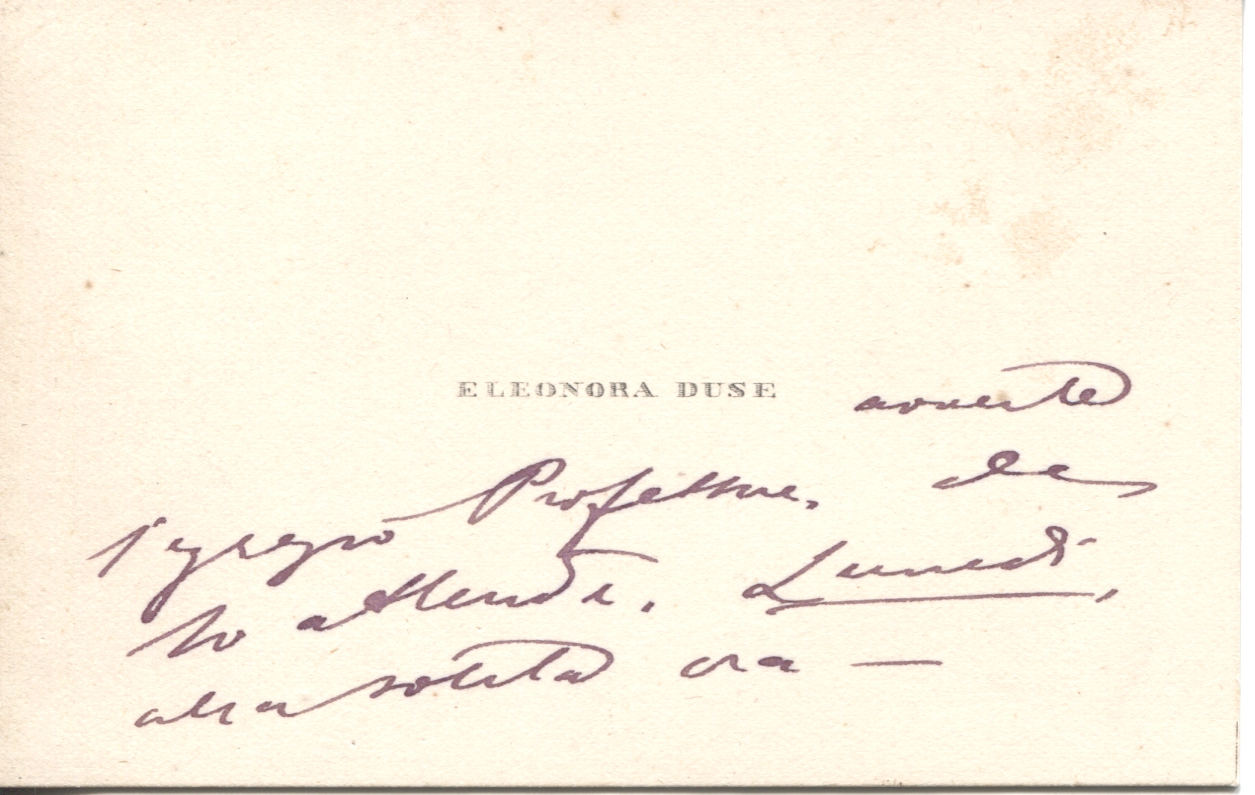 ELEONORA DUSE avverte
l'egregio Professore, che
lo attende, Lunedì,
alla solita ora —